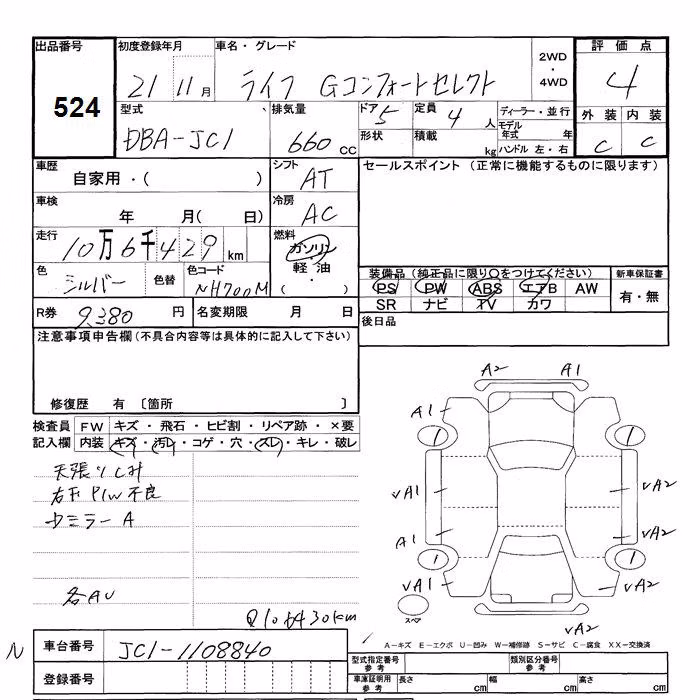 出品番号 初度登録年月 車名・グレード 2WD・4WD 評価点
524 21 11月 ライフ Gコンフォートセレクト 4
型式 排気量 ドア 5 定員 4人 ディーラー・並行 外装 内装
DBA-JC1 660cc 形状 積載 kg モデル年式 年 ハンドル 左・右 C C
車歴 シフト セールスポイント (正常に機能するものに限ります)
自家用・( ) AT
車検 冷房
年 月( 日) AC
走行 燃料
10万6千429km ガソリン・軽油・( )
色 シルバー 色替 色コード NH700M
装備品 (純正品に限り○をつけてください) 新車保証書
PS PW ABS エアB AW 有・無
SR ナビ TV カワ
R券 9,380円 名変期限 月 日 後日品
注意事項申告欄(不具合内容等は具体的に記入して下さい)
修復歴 有 〔箇所 〕
検査員記入欄 FW キズ・飛石・ヒビ割・リペア跡・×要
内装 キズ・汚レ・コゲ・穴・スレ・キレ・破レ
天張りしみ
P/W不良
ミラーA
各AU
Q106430km
A2 A1
A1
1 1
VA1 VA2
A1 VA2
1 1
VA1 VA2
スペア
VA2
A-キズ E-エクボ U-凹み W-補修跡 S-サビ C-腐食 XX-交換済
N 車台番号 JC1-1108840
登録番号
型式指定番号 参考 類別区分番号 参考
車庫証明用 参考 長さ cm 幅 cm 高さ cm